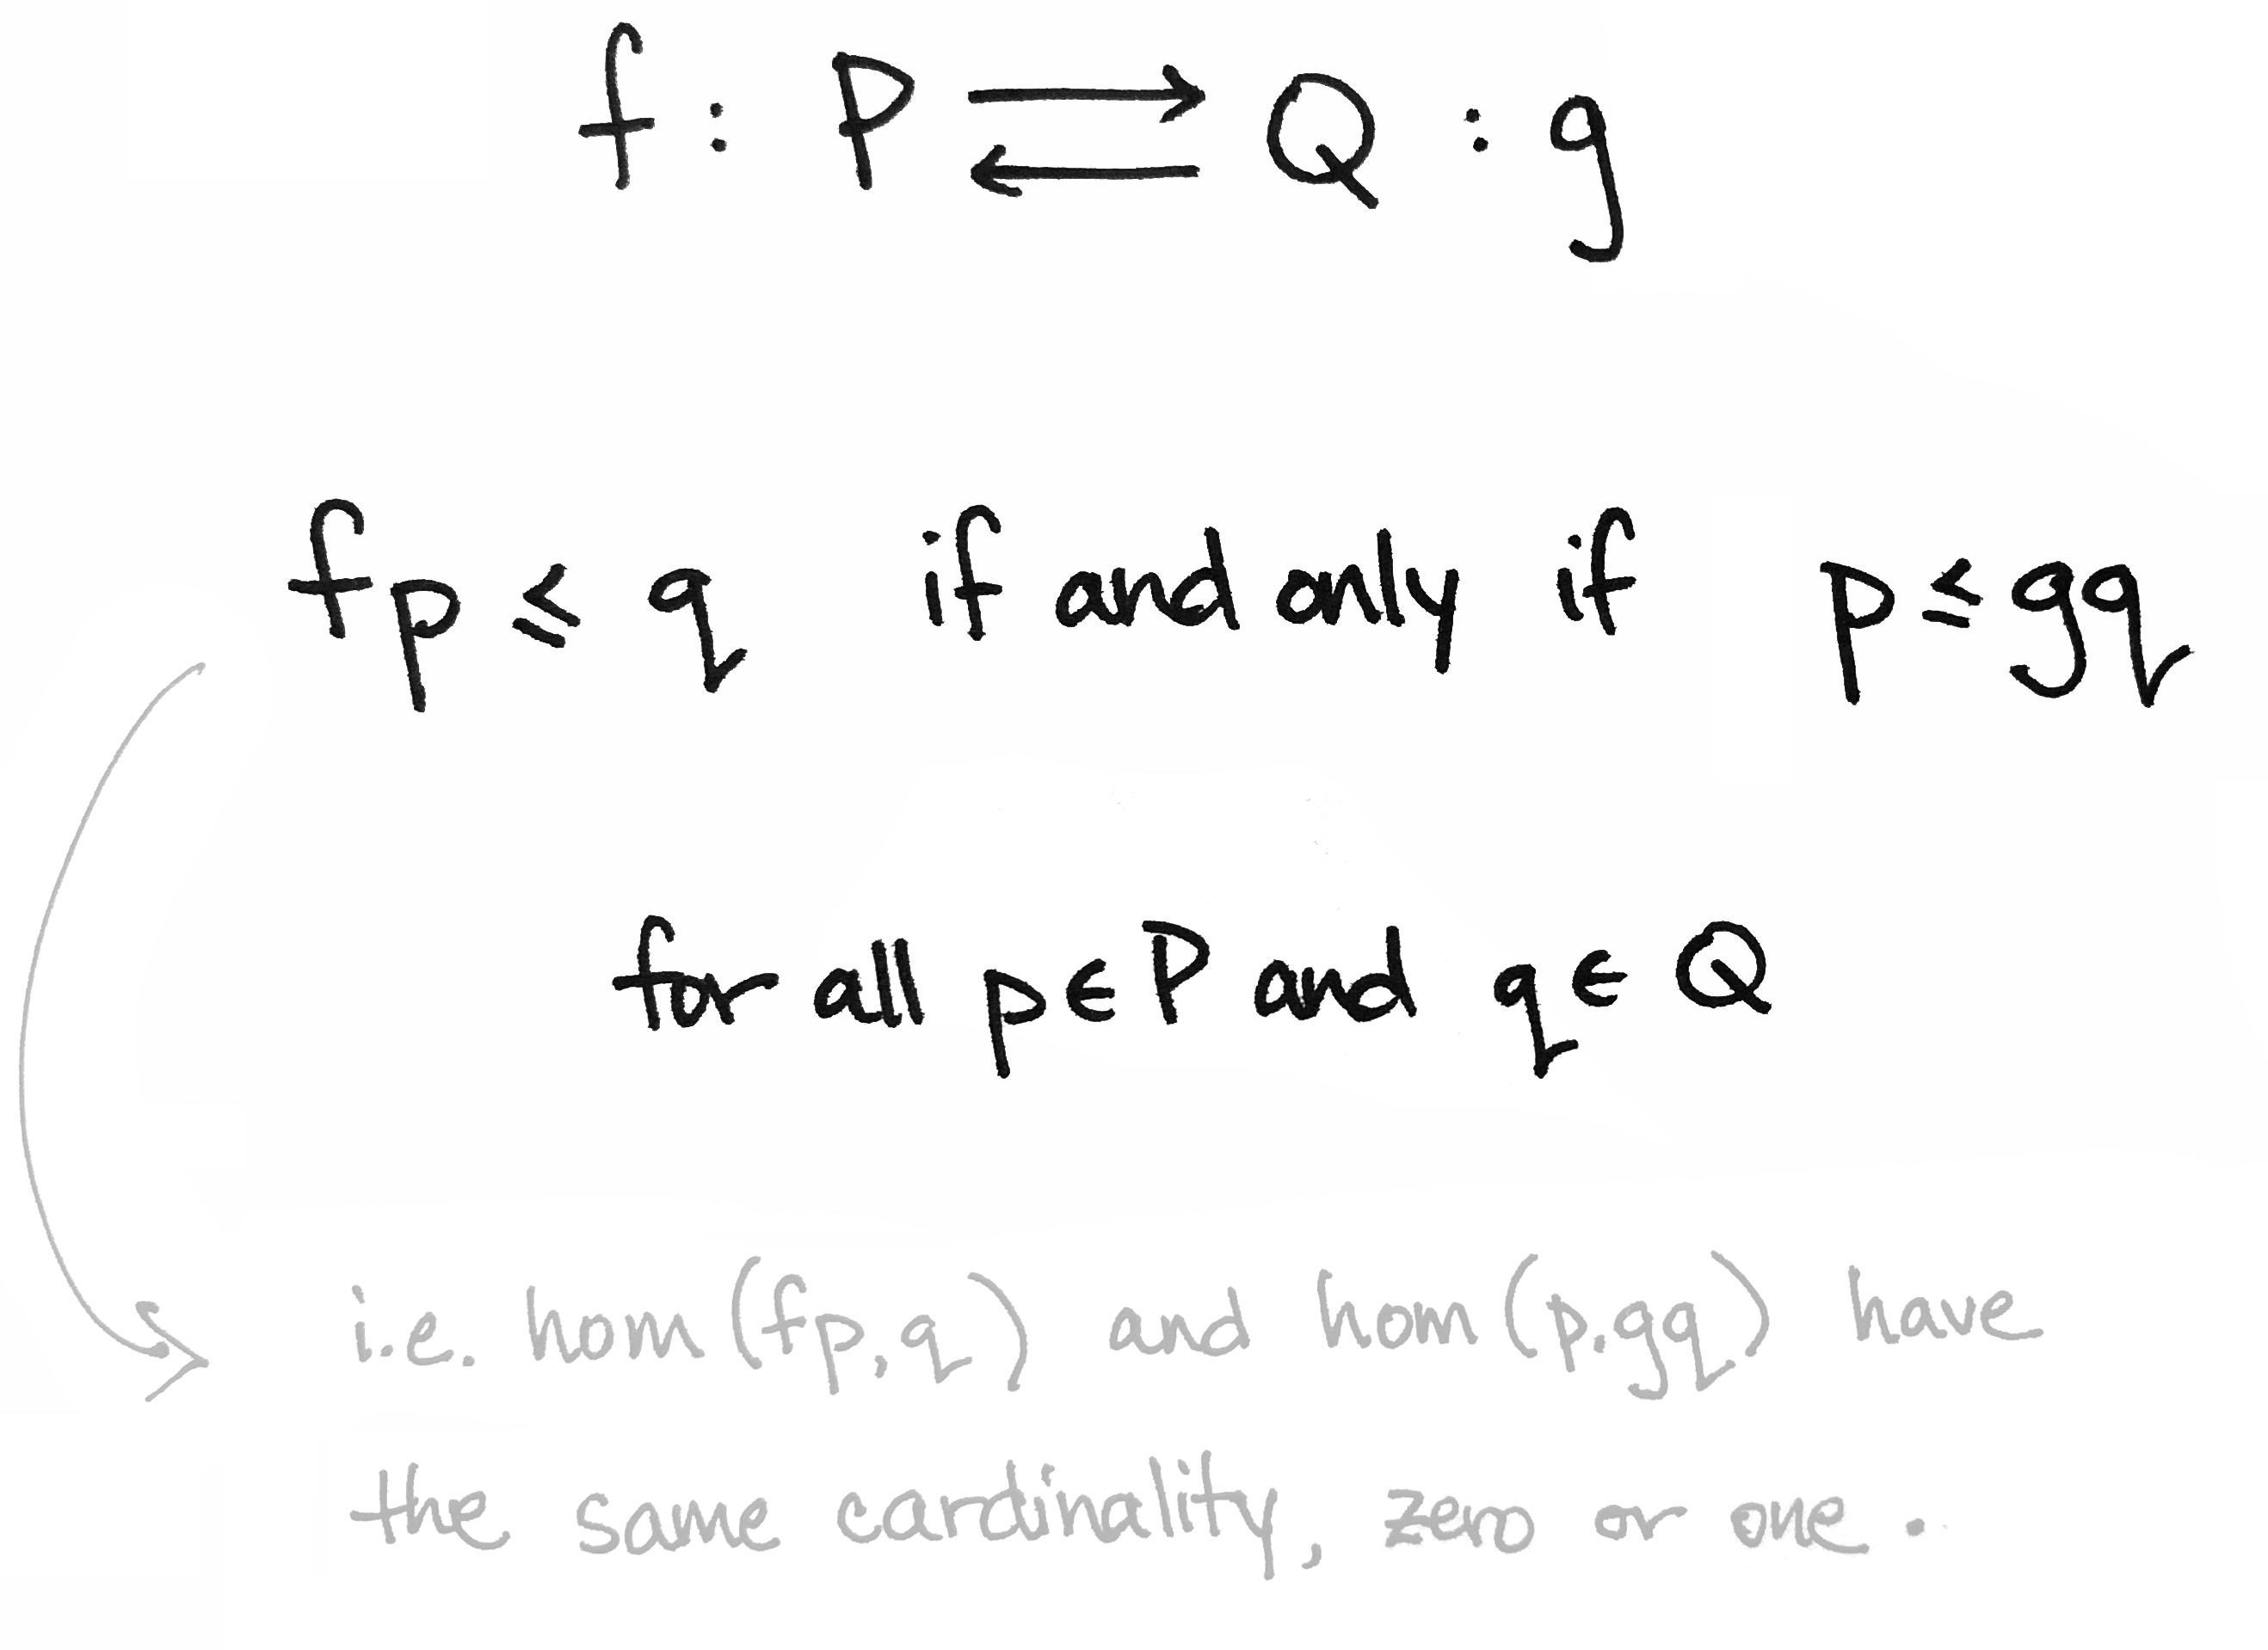 f : P ⇄ Q : g
fp ≤ q if and only if p ≤ gq
for all p ∈ P and q ∈ Q
i.e. hom(fp, q) and hom(p, gq) have
the same cardinality, zero or one.